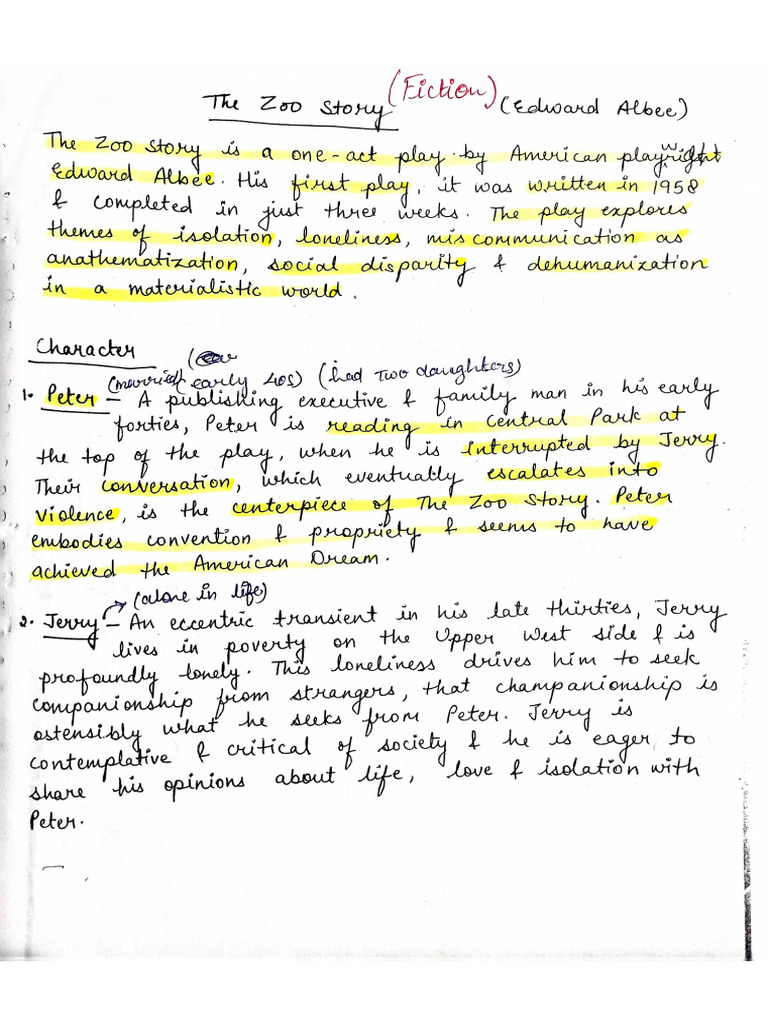 The Zoo Story (Fiction) (Edward Albee)
The Zoo Story is a one-act play by American playwright
Edward Albee. His first play, it was written in 1958
& completed in just three weeks. The play explores
themes of isolation, loneliness, miscommunication as
anathematization, social disparity & dehumanization
in a materialistic world.
Character
(married) (early 40s) (had two daughters)
1. Peter – A publishing executive & family man in his early
forties, Peter is reading in Central Park at
the top of the play, when he is interrupted by Jerry.
Their conversation, which eventually escalates into
violence, is the centerpiece of The Zoo Story. Peter
embodies convention & propriety & seems to have
achieved the American Dream.
(alone in life)
2. Jerry – An eccentric transient in his late thirties, Jerry
lives in poverty on the Upper West side & is
profoundly lonely. This loneliness drives him to seek
companionship from strangers, that champanionship is
ostensibly what he seeks from Peter. Jerry is
contemplative & critical of society & he is eager to
share his opinions about life, love & isolation with
Peter.